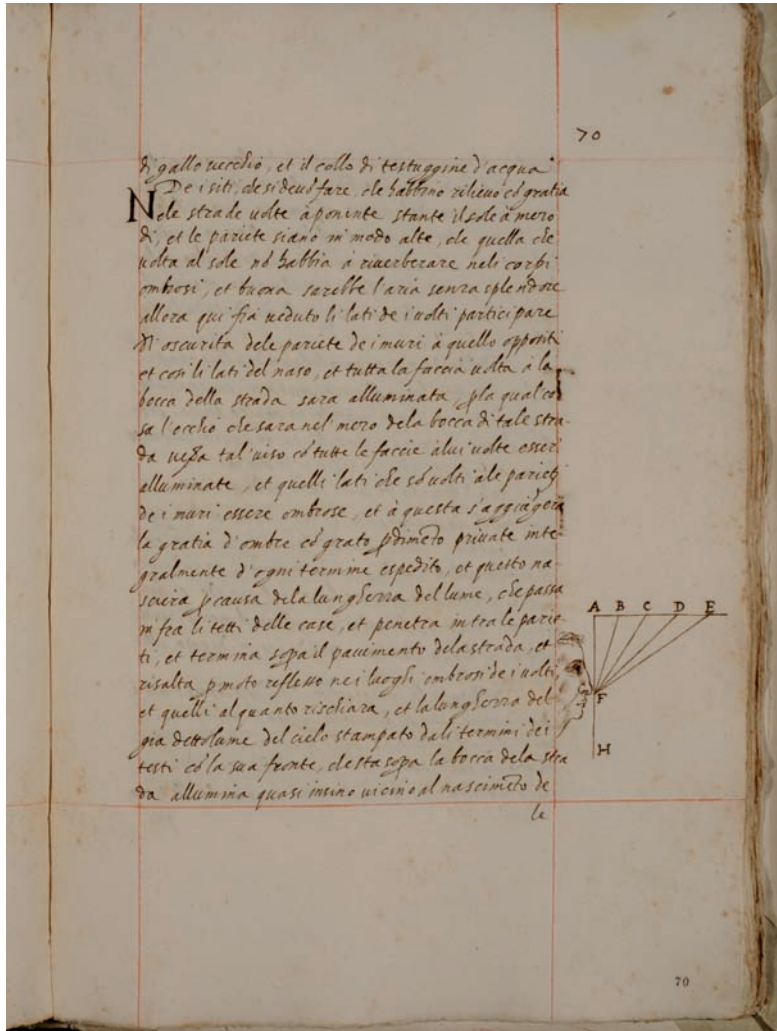 70
di gallo uecchio, et il collo di testuggine d'acqua
De i siti, che si deuō fare, che habbino rilieuo cō gratia
Nele strade uolte à ponente stante il sole à mezo
dì, et le pariete siano in modo alte, che quella che
uolta al sole nō habbia à riuerberare neli corpi
ombrosi, et buona sarebbe l'aria senza splendore
allora qui fia ueduto li lati de i uolti participare
dl'oscurita dele pariete de i muri à quello oppositi
et cosi li lati del naso, et tutta la faccia uolta à la
bocca della strada sara alluminata, p la qual co
sa l'occhio che sara nel mezo dela bocca di tale stra-
da uedra tal uiso cō tutte le faccie à lui uolte esser
alluminate, et quelli lati che sō uolti à le parieti
de i muri essere ombrose, et à questa s'aggiūgera
la gratia d'ombre cō grato pdimēto priuate inte-
gralmente d'ogni termine espedito, et questo na-
scera p causa dela lunghezza del lume, che passa
infra li tetti delle case, et penetra in tra le parie-
ti, et termina sopa il pauimento dela strada, et
risalta p moto reflesso ne i luoghi ombrosi de i uolti,
et quelli alquanto rischiara, et la lunghezza del
gia detto lume del cielo stampato dali termini dei
testi cō la sua fronte, che sta sopa la bocca dela stra
da allumina quasi insino uicino al nascimēto de
le
A B C D E
F
H
70